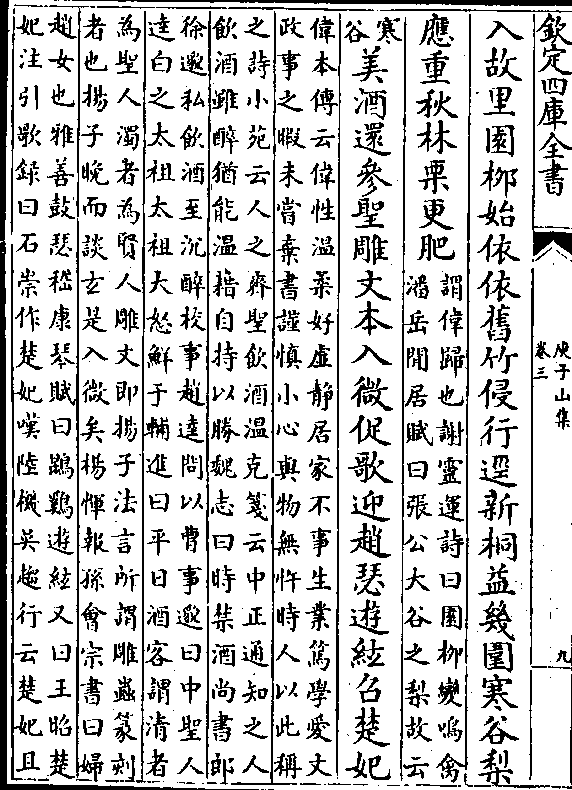 欽定四庫全書
庾子山集
卷三
九
入故里園栁始依依舊竹侵行逕新桐益幾圍寒谷梨
應重秋林栗更肥
謂偉歸也謝靈運詩曰園栁變鳴禽
潘岳閒居賦曰張公大谷之梨故云
寒
谷
美酒還參聖雕文本入微促歌迎趙瑟遊絃召楚妃
偉本傳云偉性溫柔好虛静居家不事生業篤學愛文
政事之暇未嘗棄書謹慎小心與物無忤時人以此稱
之詩小苑云人之齊聖飲酒溫克箋云中正通知之人
飲酒雖醉猶能溫藉自持以勝魏志曰時禁酒尚書郎
徐邈私飲酒至沉醉校事趙達問以曹事邈曰中聖人
達白之太祖太祖大怒鮮于輔進曰平日酒客謂清者
為聖人濁者為賢人雕文即揚子法言所謂雕蟲篆刻
者也揚子晚而談玄是入微矣楊惲報孫會宗書曰婦
趙女也雅善鼓瑟嵇康琴賦曰鵾鷄遊絃又曰王昭楚
妃注引歌録曰石崇作楚妃嘆陸機吳趨行云楚妃且